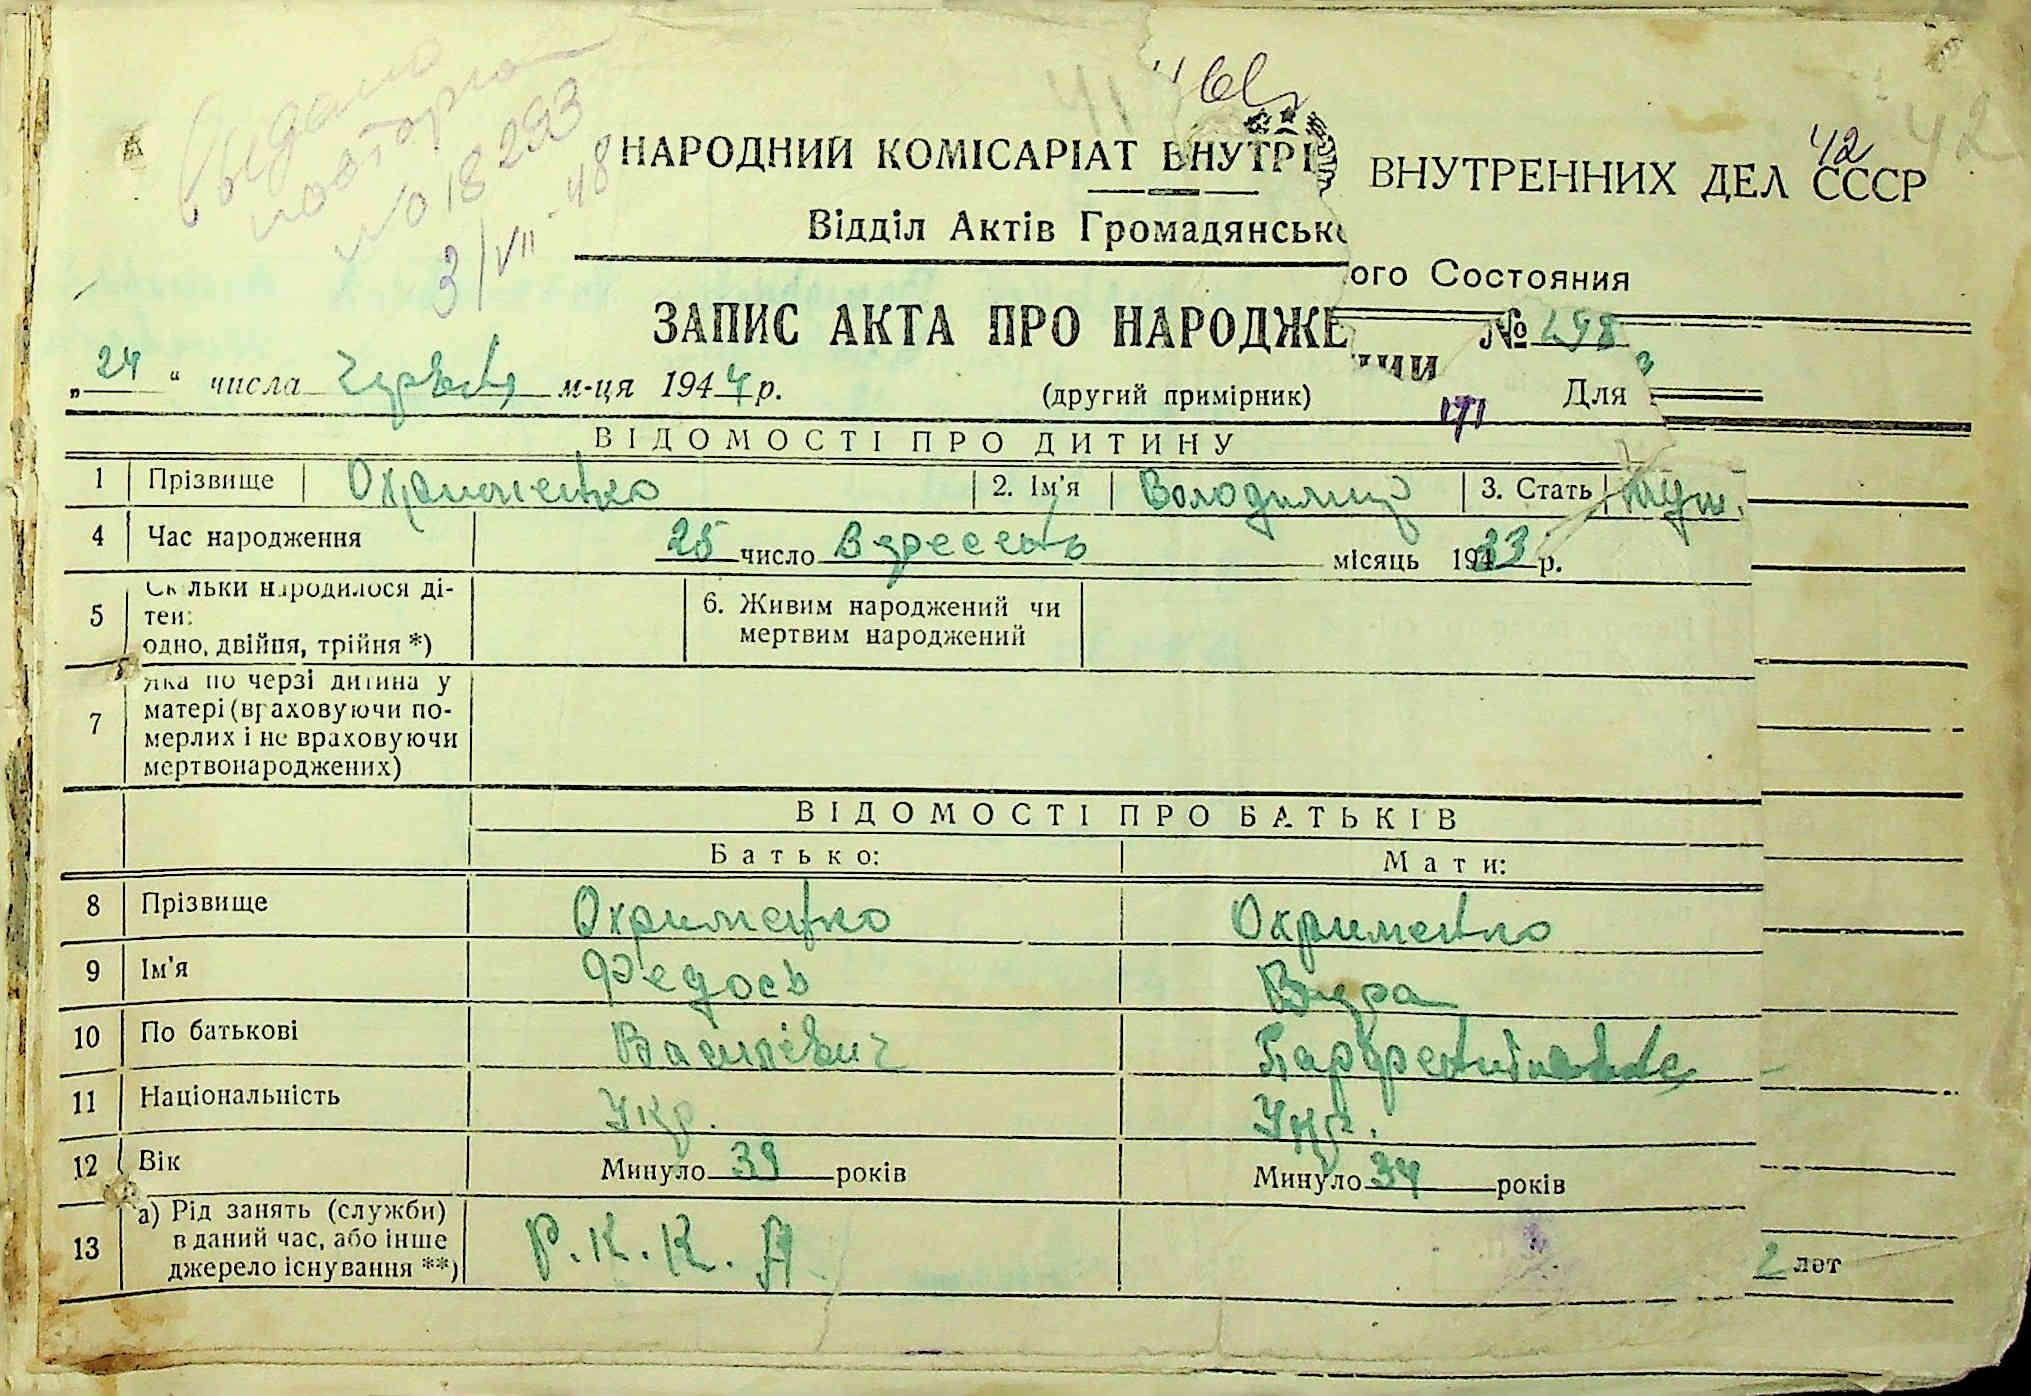 Выдано
повторно
18293
3/VII-48
42
42
НАРОДНИЙ КОМІСАРІАТ ВНУТРІ
ВНУТРЕННИХ ДЕЛ СССР
Відділ Актів Громадянськ
ого Состояния
ЗАПИС АКТА ПРО НАРОДЖЕ № 298
„24“ числа Червня м-ця 1944 р. (другий примірник) Для
171
ВІДОМОСТІ ПРО ДИТИНУ
1 Прізвище Охрименко 2. Ім'я Володимир 3. Стать муж.
4 Час народження 25 число Вересень місяць 1933 р.
5 Скільки народилося ді-
тей:
одно, двійня, трійня *)
6. Живим народжений чи
мертвим народжений
7 Яка по черзі дитина у
матері (враховуючи по-
мерлих і не враховуючи
мертвонароджених)
ВІДОМОСТІ ПРО БАТЬКІВ
Батько: Мати:
8 Прізвище Охрименко Охрименко
9 Ім'я Федось Вера
10 По батькові Василівич
11 Національність Укр. Укр.
12 Вік Минуло 39 років Минуло 34 років
13 а) Рід занять (служби)
в даний час, або інше
джерело існування **)
Р.К.К.А.
2 лет